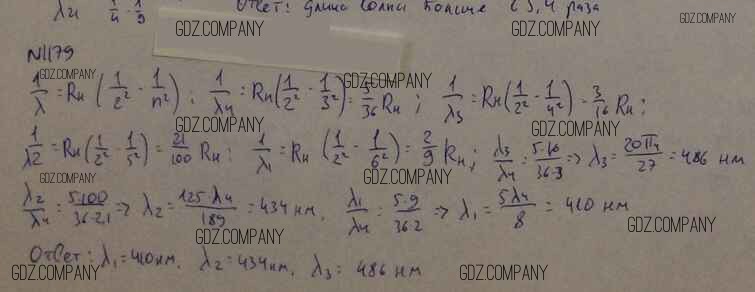 λ4 1/4 - 1/9 Ответ: длина волны больше в 5,4 раза
GDZ.COMPANY GDZ.COMPANY GDZ.COMPANY
N1179
GDZ.COMPANY GDZ.COMPANY GDZ.COMPANY
1/λ = Rн (1/2² - 1/n²); 1/λ4 = Rн(1/2² - 1/3²) = 5/36 Rн; 1/λ3 = Rн(1/2² - 1/4²) = 3/16 Rн;
GDZ.COMPANY GDZ.COMPANY
1/λ2 = Rн(1/2² - 1/5²) = 21/100 Rн; 1/λ1 = Rн (1/2² - 1/6²) = 2/9 Rн; λ3/λ4 = 5·16/36·3 => λ3 = 20πч/27 = 486 нм
GDZ.COMPANY GDZ.COMPANY GDZ.COMPANY
λ2/λ4 = 5·100/36·21 => λ2 = 125·λ4/189 = 434 нм, λ1/λ4 = 5·9/36·2 => λ1 = 5λ4/8 = 410 нм
GDZ.COMPANY
Ответ: λ1 = 410 нм, λ2 = 434 нм, λ3 = 486 нм
GDZ.COMPANY GDZ.COMPANY GDZ.COMPANY